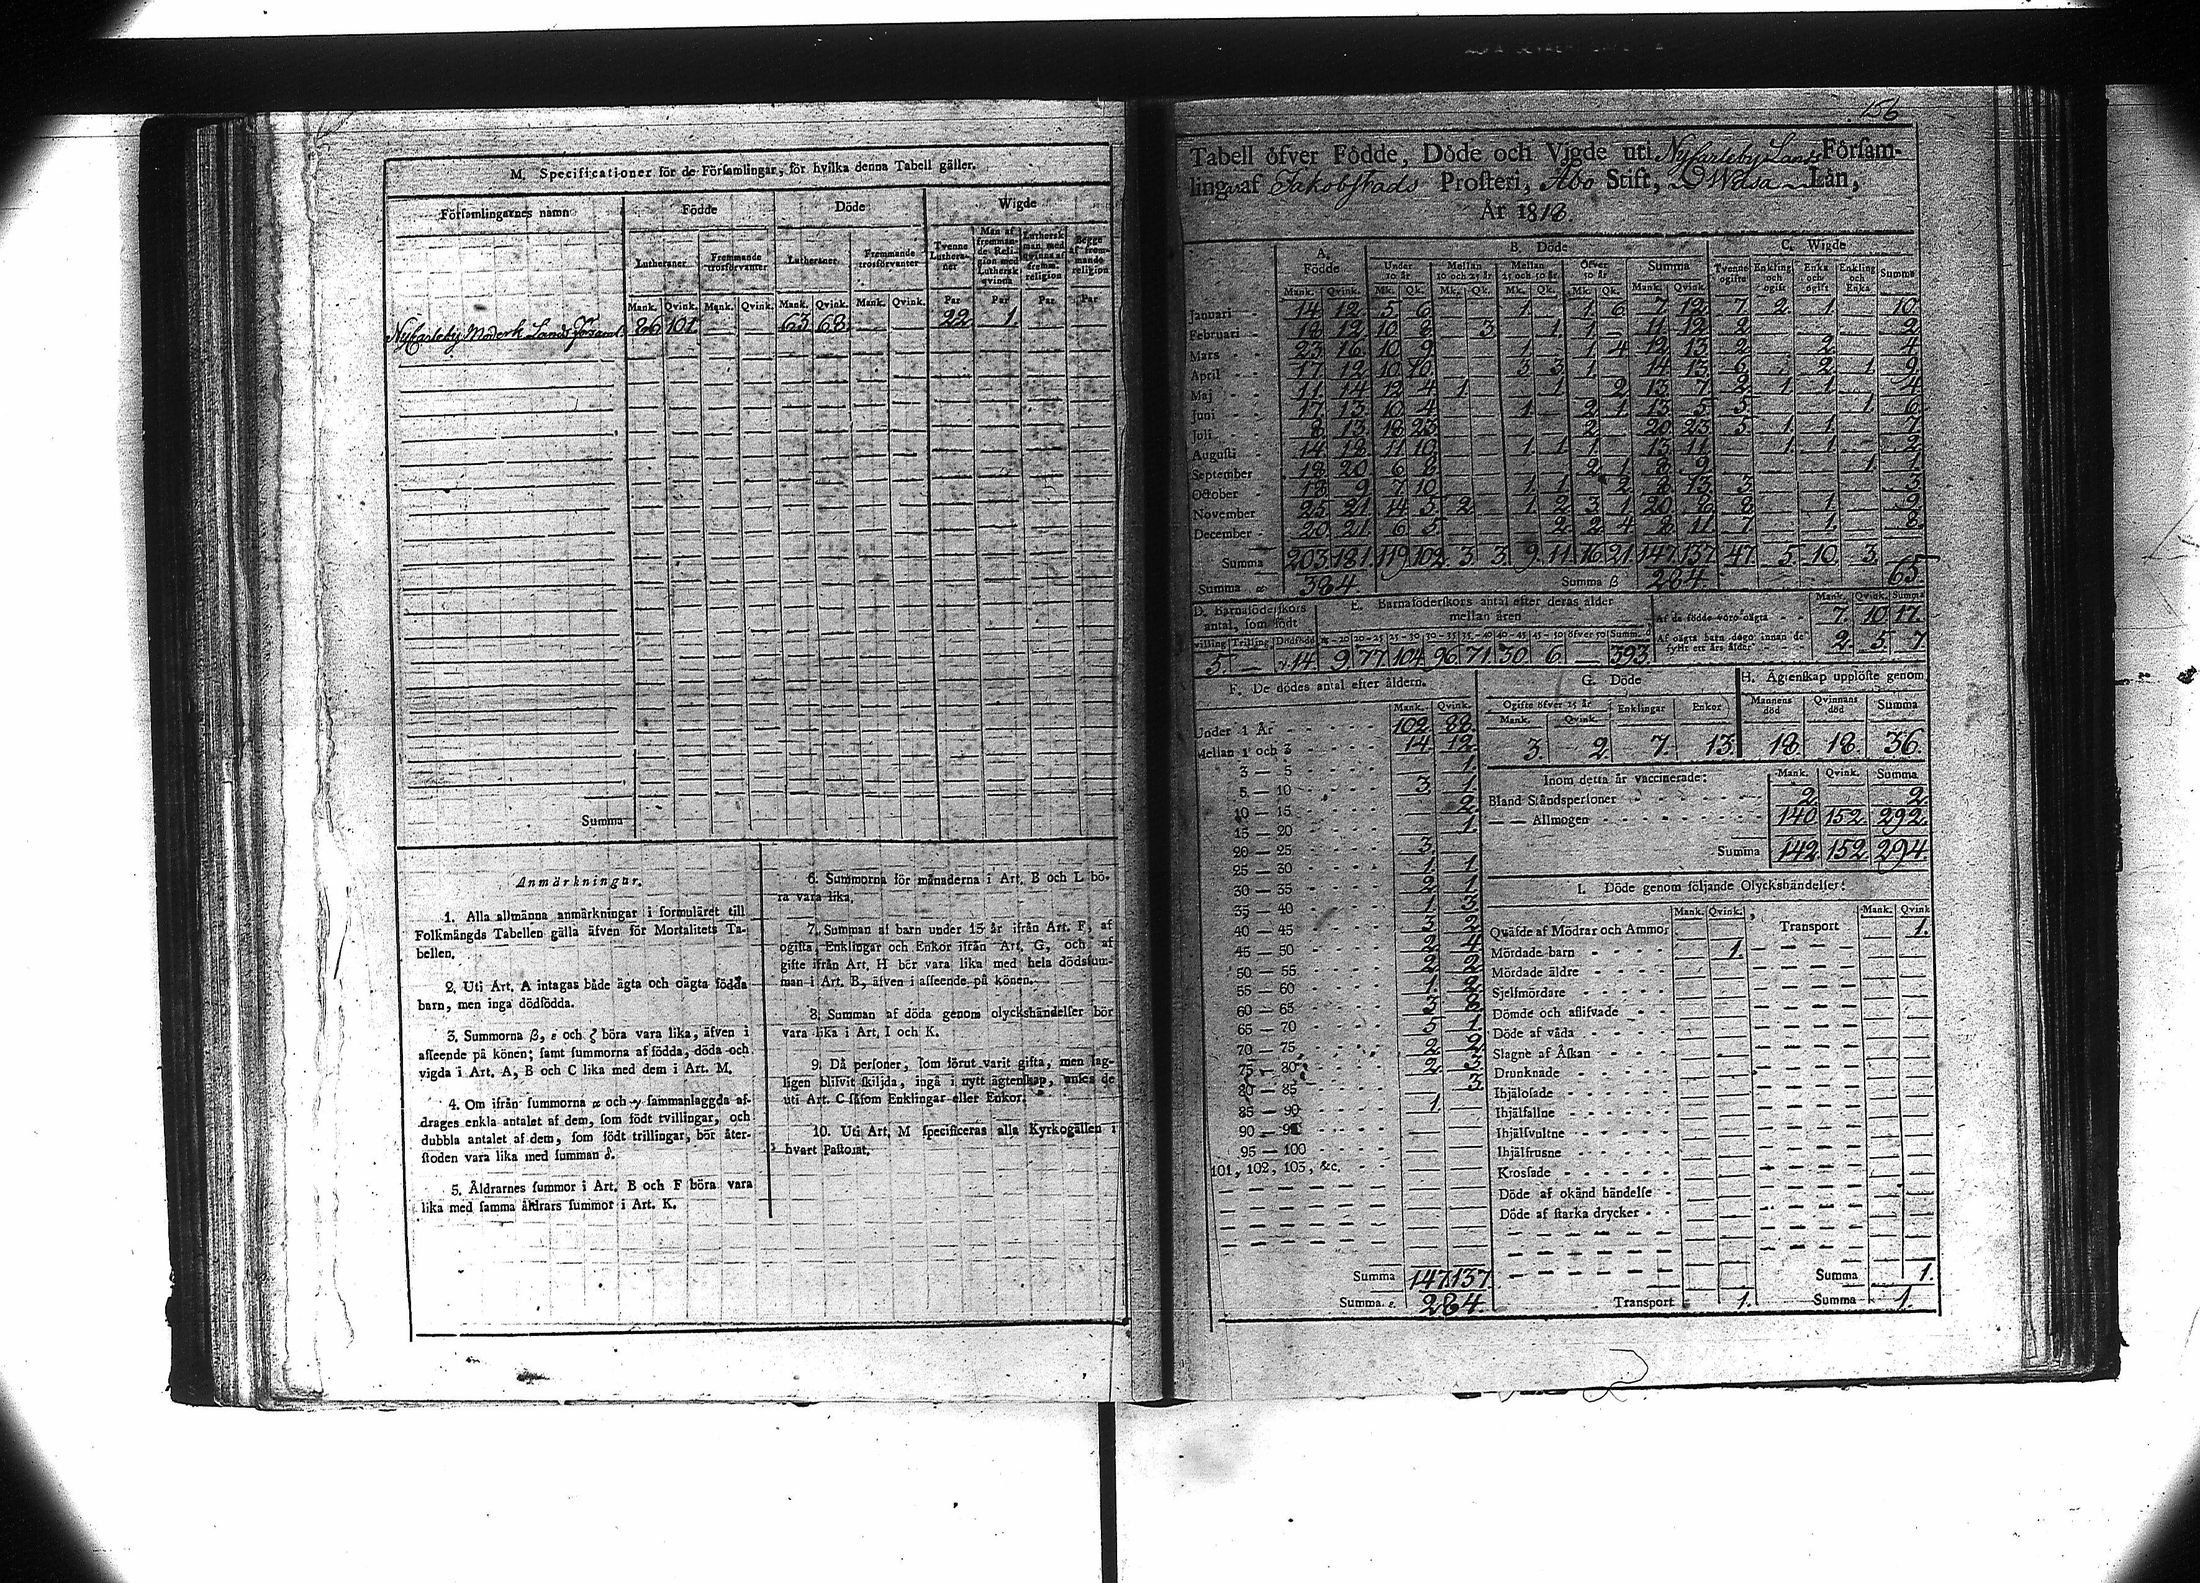 M. Specificationer för de Församlingar, för hvilka denna Tabell gäller.
Församlingarnes namn Födde Döde Wigde
Lutheraner Fremmande trosförvanter Lutheraner Fremmande trosförvanter Tvenne Lutheraner Man af fremmande Religion med Luthersk qvinna Luthersk man med qvinna af fremm. religion Begge af fremmande religion
Mank. Qvink. Mank. Qvink. Mank. Qvink. Mank. Qvink. Par Par Par Par
Nykarleby Moderk Lands Församl. 86 101 — — 63 68 — — 22 1.
Summa
Anmärkningar.
1. Alla allmänna anmärkningar i formuläret till
Folkmängds Tabellen gälla äfven för Mortalitets Ta-
bellen.
2. Uti Art. A intagas både ägta och oägta födda
barn, men inga dödfödda.
3. Summorna β, ε och ζ böra vara lika, äfven i
afseende på könen; samt summorna af födda, döda och
vigda i Art. A, B och C lika med dem i Art. M.
4. Om ifrån summorna α och γ sammanlaggda af-
drages enkla antalet af dem, som födt tvillingar, och
dubbla antalet af dem, som födt trillingar, bör åter-
stoden vara lika med summan δ.
5. Åldrarnes summor i Art. B och F böra vara
lika med samma åldrars summor i Art. K.
6. Summorna för månaderna i Art. B och L bö-
ra vara lika.
7. Summan af barn under 15 år ifrån Art. F, af
ogifta, Enklingar och Enkor ifrån Art. G, och af
gifte ifrån Art. H bör vara lika med hela dödssum-
man i Art. B, äfven i afseende på könen.
8. Summan af döda genom olyckshändelser bör
vara lika i Art. I och K.
9. Då personer, som förut varit gifta, men lag-
ligen blifvit skiljda, ingå i nytt ägtenskap, antes de
uti Art. C såsom Enklingar eller Enkor.
10. Uti Art. M specificeras alla Kyrkogällen i
hvart Pastorat.
156
Tabell öfver Födde, Döde och Vigde uti Nykarleby Lands Försam-
ling af Jakobstads Prosteri, Åbo Stift, Wasa Län,
År 1818.
A. Födde B. Döde C. Wigde
Under 10 år Mellan 10 och 25 år Mellan 25 och 50 år Öfver 50 år Summa Tvenne ogifte Enkling och ogift Enka och ogift Enkling och Enka Summa
Mank. Qvink. Mk. Qk. Mk. Qk. Mk. Qk. Mk. Qk. Mank. Qvink.
Januari 14 12 5 6 — — 1 — 1 6 7 12 7 2 1 10
Februari 18 12 10 8 — 3 — 1 1 — 11 12 2 2
Mars 23 16 10 9 — — 1 — 1 4 12 13 2 2 4
April 17 12 10 10 — — 3 3 1 14 13 6 2 1 9
Maj 11 14 12 4 1 — — 1 — 2 13 7 2 1 1 4
Juni 17 13 10 4 — — 1 — 2 1 13 5 5 1 6
Juli 8 13 18 23 — — — — 2 — 20 23 5 1 1 7
Augusti 14 18 11 10 — — 1 1 1 — 13 11 — 1 1 2
September 18 20 6 8 — — — — 2 1 8 9 1 1
October 18 9 7 10 — — 1 1 — 2 8 13 3 3
November 25 21 14 5 2 — 1 2 3 1 20 8 8 1 9
December 20 21 6 5 — — — 2 2 4 8 11 7 1 8
Summa 203 181 119 102 3 3 9 11 16 21 147 137 47 5 10 3
Summa α 384 Summa β 284 65
D. Barnaföderskors antal, som födt E. Barnaföderskors antal efter deras ålder mellan åren Mank. Qvink. Summa
Af de födde voro oägta 7 10 17.
Tvilling Trilling Dödfödd 15-20 20-25 25-30 30-35 35-40 40-45 45-50 öfver 50 Summ. δ
Af oägta barn dogo innan de fyllt ett års ålder 2 5 7
5 — 14 9 77 104 96 71 30 6 — 393
F. De dödes antal efter åldern.
Mank. Qvink.
Under 1 År 102 88
Mellan 1 och 3 14 12
3 — 5 1
5 — 10 3 1
10 — 15 2
15 — 20 1
20 — 25 3
25 — 30 1 1
30 — 35 2 1
35 — 40 1 3
40 — 45 3 2
45 — 50 2 4
50 — 55 2 2
55 — 60 1
60 — 65 3
65 — 70 5
70 — 75 2
75 — 80 2
80 — 85 3
85 — 90 1
90 — 95
95 — 100
101, 102, 103, &c.
Summa 147 137
Summa ε 284
G. Döde
Ogifte öfver 15 år Enklingar Enkor
Mank. Qvink.
3. 2. 7. 13
H. Ägtenskap upplöste genom
Mannens död Qvinnans död Summa
18 18 36
Inom detta år vaccinerade: Mank. Qvink. Summa
Bland Ståndspersoner 2 2
— — Allmogen 140 152 292
Summa 142 152 294
I. Döde genom följande Olyckshändelser:
Mank. Qvink. Mank. Qvink
Qväfde af Mödrar och Ammor Transport 1.
Mördade barn 1.
Mördade äldre
Sjelfmördare
Dömde och aflifvade
Döde af våda
Slagne af Åskan
Drunknade
Ihjälosade
Ihjälfallne
Ihjälsvultne
Ihjälfrusne
Krossade
Döde af okänd händelse
Döde af starka drycker
Summa 1.
Transport 1. Summa 1.